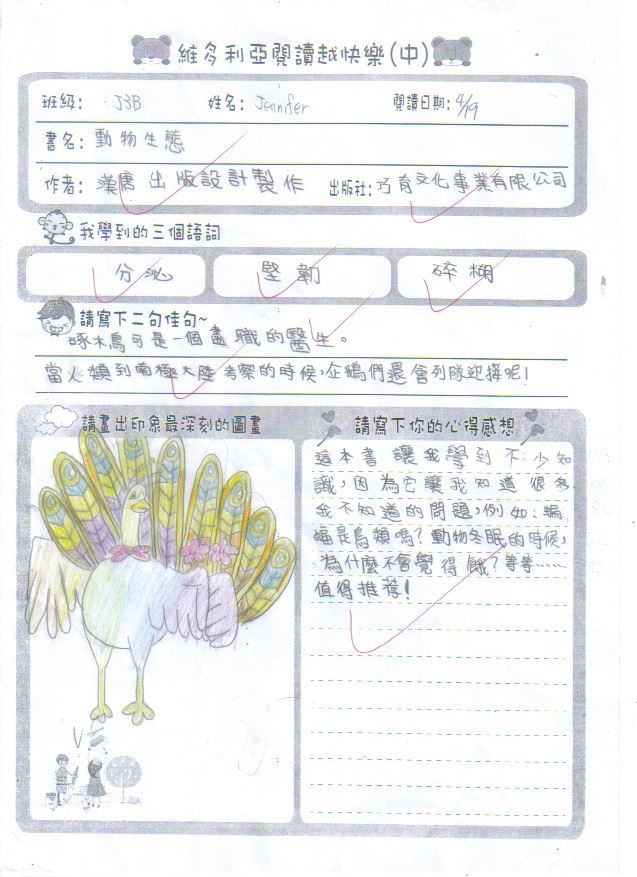 維多利亞閱讀越快樂(中)
班級: J3B 姓名: Jennifer 閱讀日期: 4/19
書名: 動物生態
作者: 漢唐出版設計製作 出版社: 巧育文化事業有限公司
我學到的三個語詞
分泌 堅韌 碎棚
請寫下二句佳句~
啄木鳥可是一個盡職的醫生。
當人類到南極大陸考察的時候,企鵝們還會列隊迎接呢!
請畫出印象最深刻的圖畫
請寫下你的心得感想
這本書讓我學到不少知
識,因為它讓我知道很多
我不知道的問題,例如:蝙
蝠是鳥類嗎?動物冬眠的時候,
為什麼不會覺得餓?等等……
值得推荐!